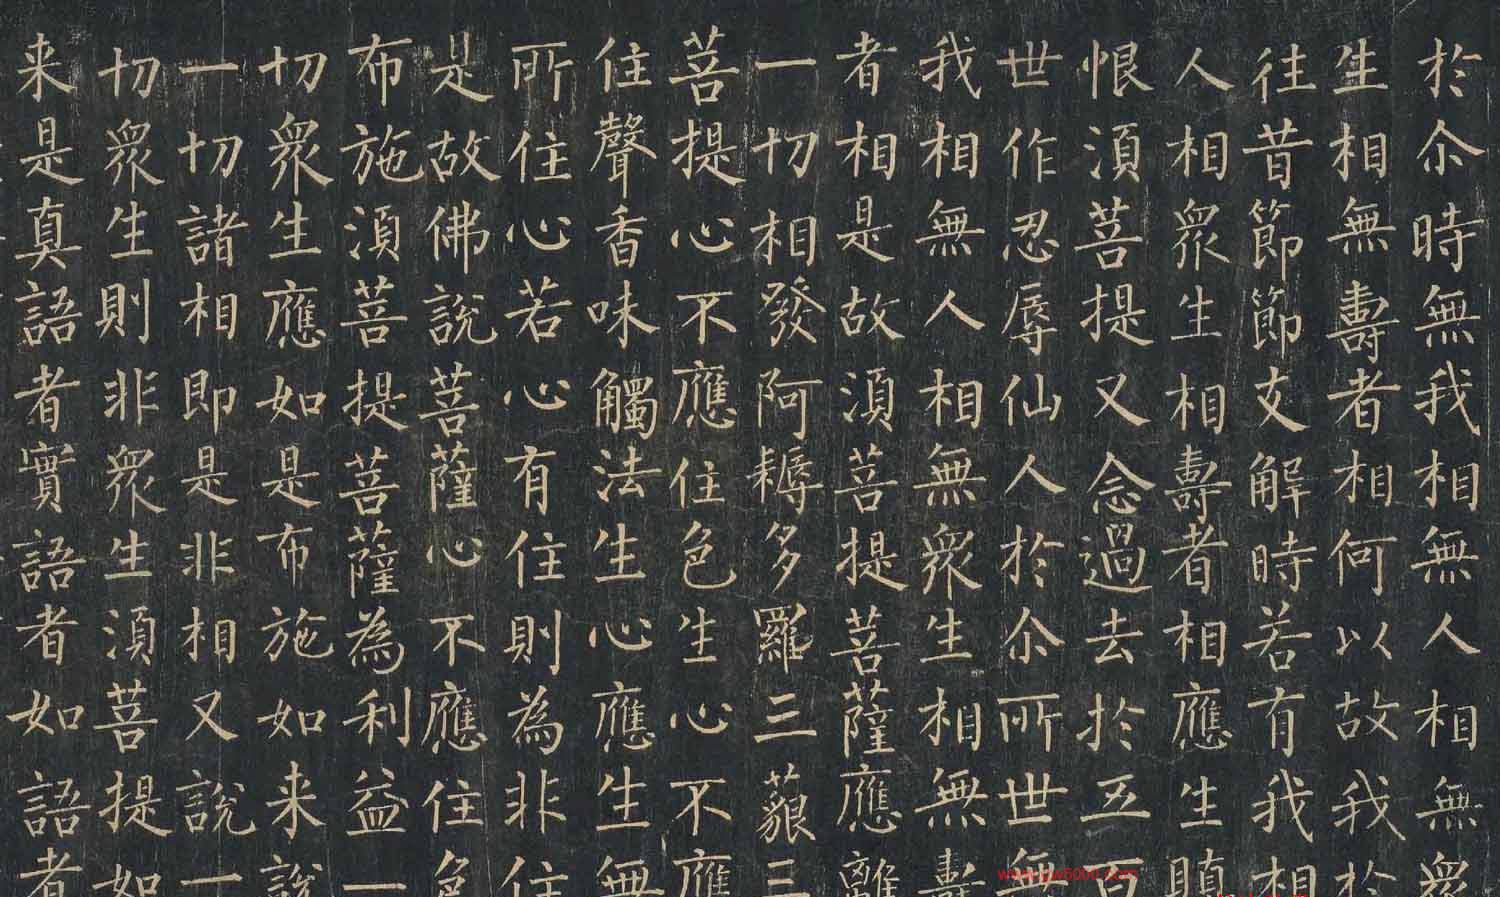 於尒時無我相無人相無眾
生相無壽者相何以故我於
往昔節節支解時若有我相
人相眾生相壽者相應生瞋
恨須菩提又念過去於五百
世作忍辱仙人於尒所世無
我相無人相無眾生相無壽
者相是故須菩提菩薩應離
一切相發阿耨多羅三藐三
菩提心不應住色生心不應
住聲香味觸法生心應生無
所住心若心有住則為非住
是故佛說菩薩心不應住色
布施須菩提菩薩為利益一
切眾生應如是布施如来說
一切諸相即是非相又說一
切眾生則非眾生須菩提如
来是真語者實語者如語者